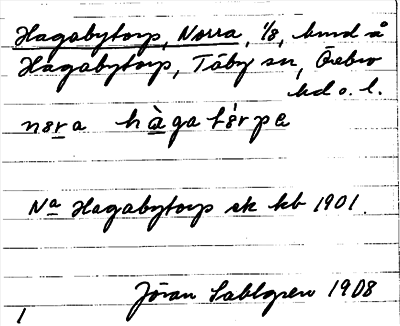 Hagabytorp, Norra, 1/8, hmd å
Hagabytorp, Täby sn, Örebro
hd o. l.
nɛra hàgatɛ́rpa
Na Hagabytorp ek kb 1901.
Jöran Sahlgren 1908
1